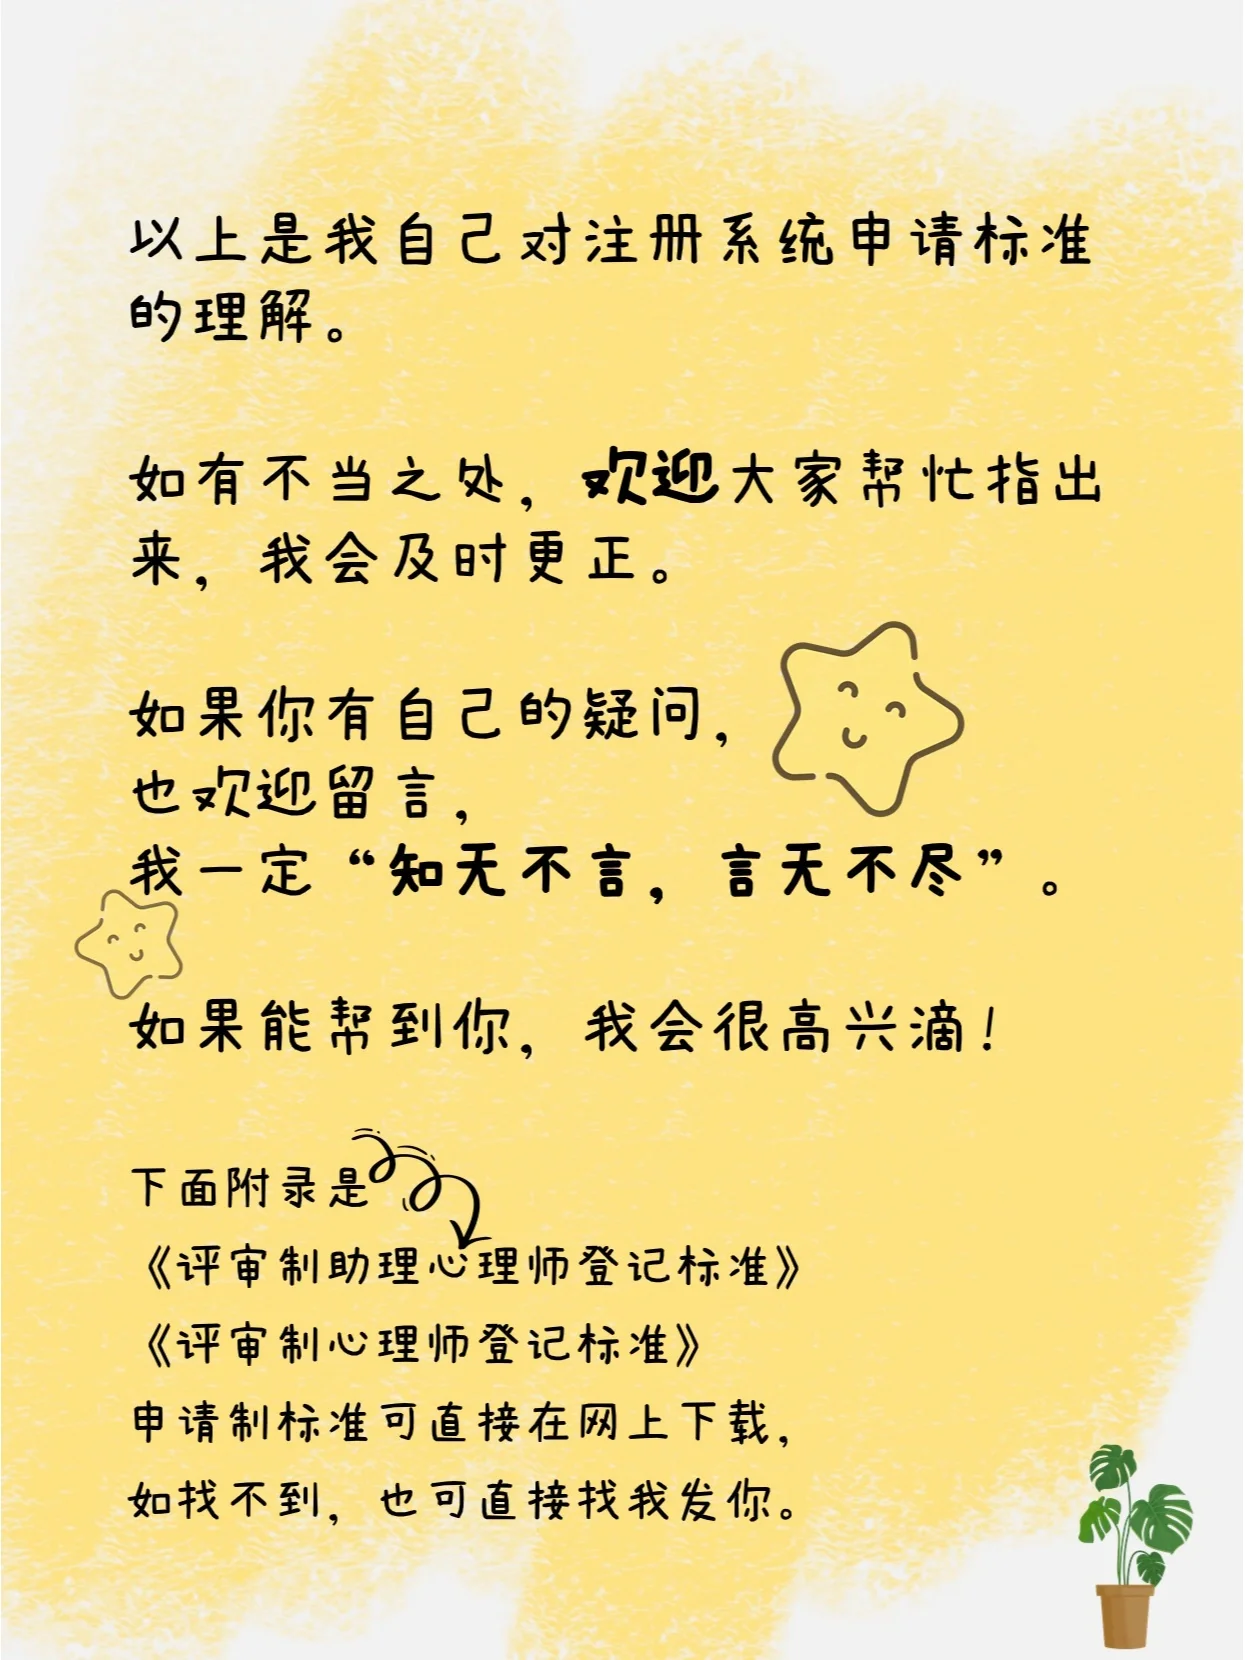 以上是我自己对注册系统申请标准
的理解。
如有不当之处，欢迎大家帮忙指出
来，我会及时更正。
如果你有自己的疑问，
也欢迎留言，
我一定“知无不言，言无不尽”。
如果能帮到你，我会很高兴滴！
下面附录是
《评审制助理心理师登记标准》
《评审制心理师登记标准》
申请制标准可直接在网上下载，
如找不到，也可直接找我发你。